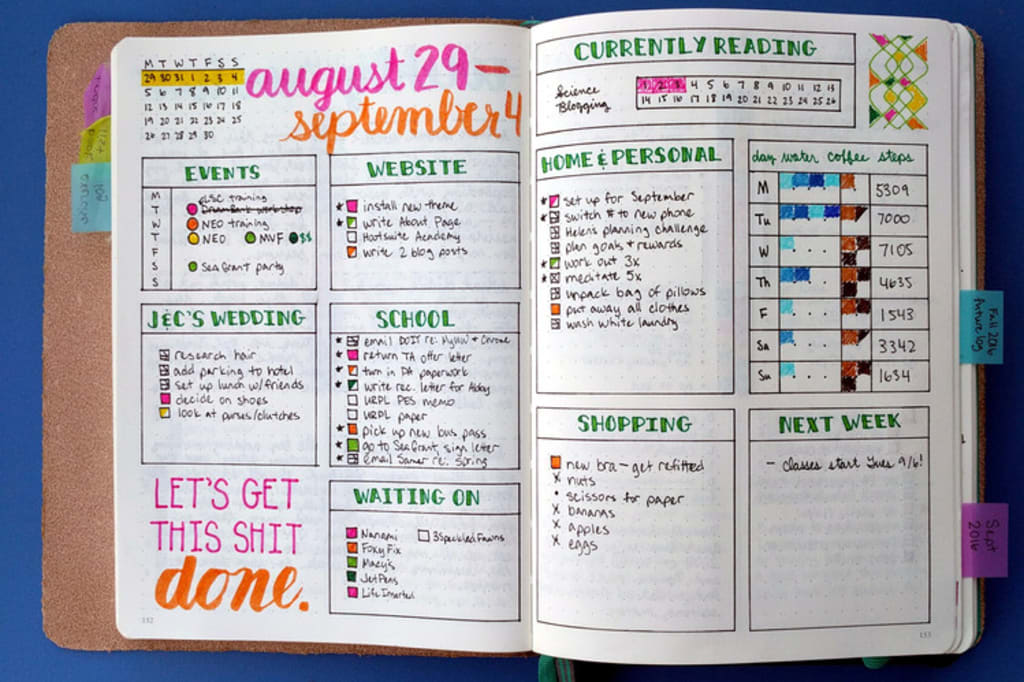 M T W T F S S
29 30 31 1 2 3 4
5 6 7 8 9 10 11
12 13 14 15 16 17 18
19 20 21 22 23 24 25
26 27 28 29 30
august 29 –
september 4
EVENTS
M
T
W
T
F
S
S
training
NEO training
NEO MVF $$
Sea Grant party
WEBSITE
install new theme
write About Page
Hootsuite Academy
write 2 blog posts
J&C'S WEDDING
research hair
add parking to hotel
set up lunch w/friends
decide on shoes
look at purses/clutches
SCHOOL
email DoIT re: MyUW + Chrome
return TA offer letter
turn in PA paperwork
write rec. letter for Abby
URPL PES memo
URPL paper
pick up new bus pass
go to Sea Grant, sign letter
email Samer re: Spring
LET'S GET
THIS SHIT
done.
WAITING ON
Nanami
3 Speckled Fawns
Foxy Fix
Macy's
Jet Pens
Life Inserted
132
CURRENTLY READING
Science
Blogging
1 2 3 4 5 6 7 8 9 10 11 12 13
14 15 16 17 18 19 20 21 22 23 24 25 26
HOME & PERSONAL
set up for September
switch # to new phone
Helens planning challenge
plan goals + rewards
work out 3x
meditate 5x
unpack bag of pillows
put away all clothes
wash white laundry
day water coffee steps
M 5309
Tu 7000
W 7105
Th 4635
F 1543
Sa 3342
Su 1634
SHOPPING
new bra – get refitted
x nuts
• scissors for paper
x bananas
x apples
x eggs
NEXT WEEK
– classes start Tues 9/6!
133
Fall 2016
future log
Sept
2016